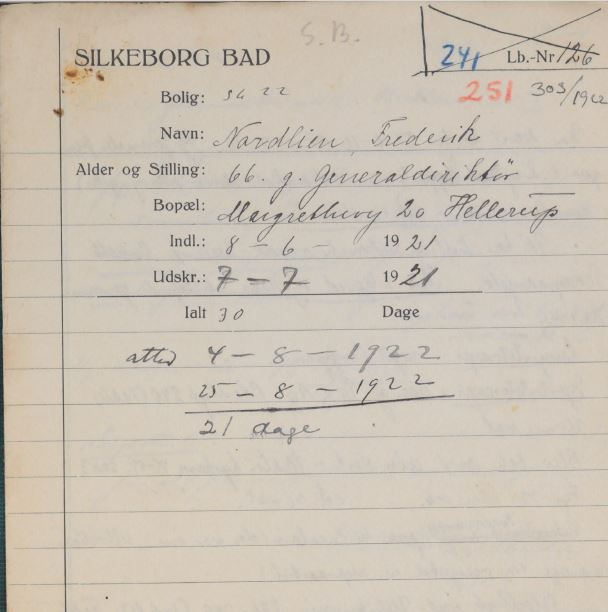 S.B.
SILKEBORG BAD 241 Lb.-Nr 126
251 303/1922
Bolig: 22
Navn: Nordlien, Frederik
Alder og Stilling: 66. g. Generaldirektör
Bopæl: Margrethevej 20 Hellerup
Indl.: 8 - 6 - 1921
Udskr.: 7 - 7 1921
Ialt 30 Dage
4 - 8 - 1922
25 - 8 - 1922
21 dage